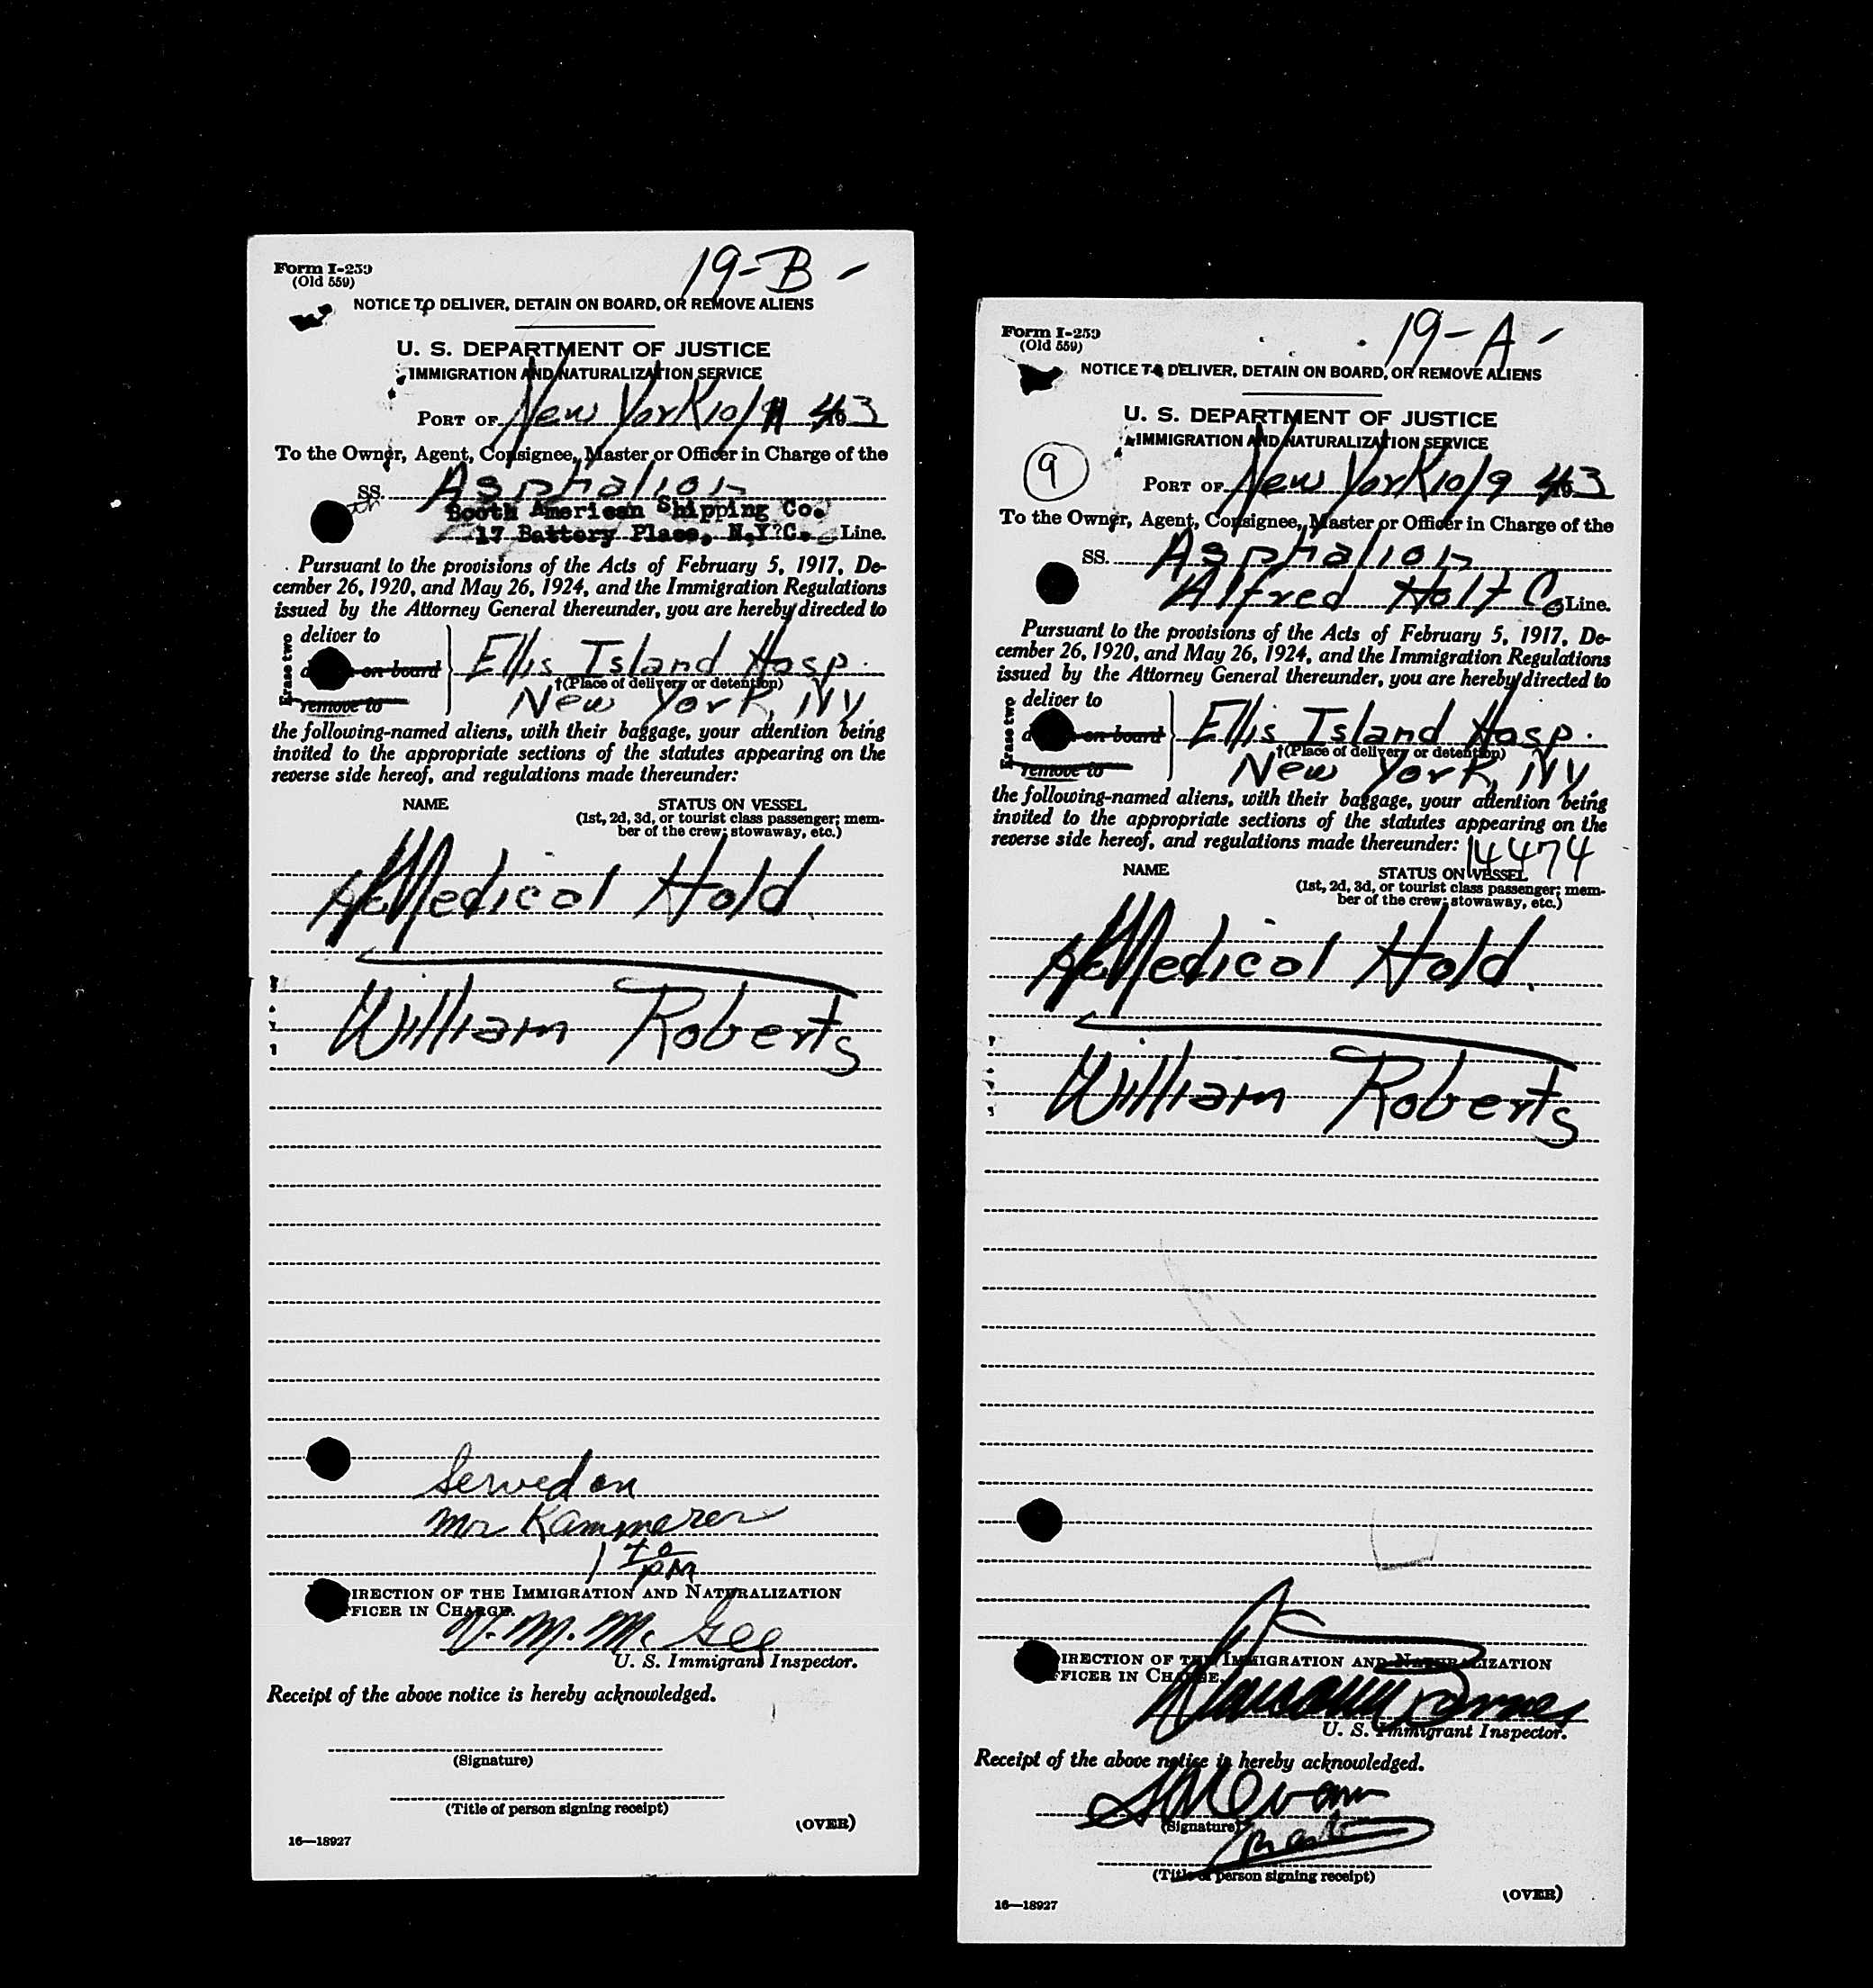 19-B-
Form I-259
(Old 559)
NOTICE TO DELIVER, DETAIN ON BOARD, OR REMOVE ALIENS
U. S. DEPARTMENT OF JUSTICE
IMMIGRATION AND NATURALIZATION SERVICE
PORT OF New York 10/11 1943
To the Owner, Agent, Consignee, Master or Officer in Charge of the
SS. Asphalion
Booth American Shipping Co.
17 Battery Place, N.Y.C. Line.
Pursuant to the provisions of the Acts of February 5, 1917, De-
cember 26, 1920, and May 26, 1924, and the Immigration Regulations
issued by the Attorney General thereunder, you are hereby directed to
Erase two
deliver to
on board
remove to
Ellis Island Hosp.
†(Place of delivery or detention)
New York, NY.
the following-named aliens, with their baggage, your attention being
invited to the appropriate sections of the statutes appearing on the
reverse side hereof, and regulations made thereunder:
NAME STATUS ON VESSEL
(1st, 2d, 3d, or tourist class passenger; mem-
ber of the crew; stowaway, etc.)
Medical Hold.
William Roberts
Served on
Mr Kammerer
1 40 PM
IRECTION OF THE IMMIGRATION AND NATURALIZATION
FFICER IN CHARGE.
V. M. McGee
U. S. Immigrant Inspector.
Receipt of the above notice is hereby acknowledged.
(Signature)
(Title of person signing receipt)
(OVER)
16—18927
19-A-
Form I-259
(Old 559)
NOTICE TO DELIVER, DETAIN ON BOARD, OR REMOVE ALIENS
U. S. DEPARTMENT OF JUSTICE
IMMIGRATION AND NATURALIZATION SERVICE
9
PORT OF New York 10/9 1943
To the Owner, Agent, Consignee, Master or Officer in Charge of the
SS. Asphalion
Alfred Holt Co Line.
Pursuant to the provisions of the Acts of February 5, 1917, De-
cember 26, 1920, and May 26, 1924, and the Immigration Regulations
issued by the Attorney General thereunder, you are hereby directed to
Erase two
deliver to
on board
remove to
Ellis Island Hosp.
†(Place of delivery or detention)
New York, NY.
the following-named aliens, with their baggage, your attention being
invited to the appropriate sections of the statutes appearing on the
reverse side hereof, and regulations made thereunder:
14474
NAME STATUS ON VESSEL
(1st, 2d, 3d, or tourist class passenger; mem-
ber of the crew; stowaway, etc.)
Medical Hold.
William Roberts
IRECTION OF THE IMMIGRATION AND NATURALIZATION
FFICER IN CHARGE.
U. S. Immigrant Inspector.
Receipt of the above notice is hereby acknowledged.
(Signature)
(Title of person signing receipt)
(OVER)
16—18927